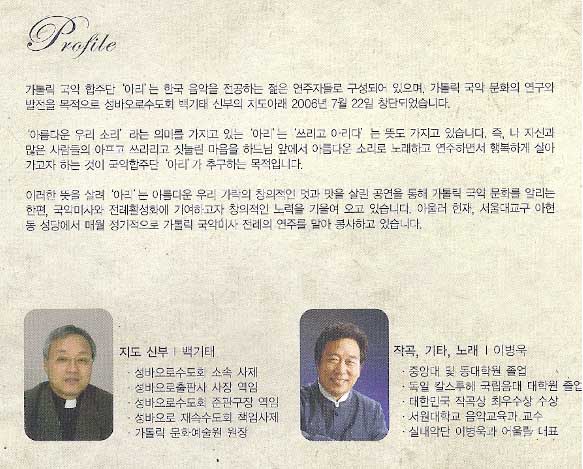 Profile
가톨릭 국악 합주단 '아리'는 한국 음악을 전공하는 젊은 연주자들로 구성되어 있으며, 가톨릭 국악 문화의 연구와
발전을 목적으로 성바오로수도회 백기태 신부의 지도아래 2006년 7월 22일 창단되었습니다.
'아름다운 우리 소리' 라는 의미를 가지고 있는 '아리'는 '쓰리고 아리다' 는 뜻도 가지고 있습니다. 즉, 나 자신과
많은 사람들의 아프고 쓰리리고 짓눌린 마음을 하느님 앞에서 아름다운 소리로 노래하고 연주하면서 행복하게 살아
가고자 하는 것이 국악합주단 '아리'가 추구하는 목적입니다.
이러한 뜻을 살려 '아리'는 아름다운 우리 가락의 창의적인 멋과 맛을 살린 공연을 통해 가톨릭 국악 문화를 알리는
한편, 국악미사와 전례활성화에 기여하고자 창의적인 노력을 기울여 오고 있습니다. 아울러 현재, 서울대교구 아현
동 성당에서 매월 정기적으로 가톨릭 국악미사 전례의 연주를 맡아 봉사하고 있습니다.
지도 신부 | 백기태
· 성바오로수도회 소속 사제
· 성바오로출판사 사장 역임
· 성바오로수도회 준관구장 역임
· 성바오로 재속수도회 책임사제
· 가톨릭 문화예술원 원장
작곡, 기타, 노래 | 이병욱
· 중앙대 및 동대학원 졸업
· 독일 칼스루헤 국립음대 대학원 졸업
· 대한민국 작곡상 최우수상 수상
· 서원대학교 음악교육과 교수
· 실내악단 이병욱과 어울림 대표